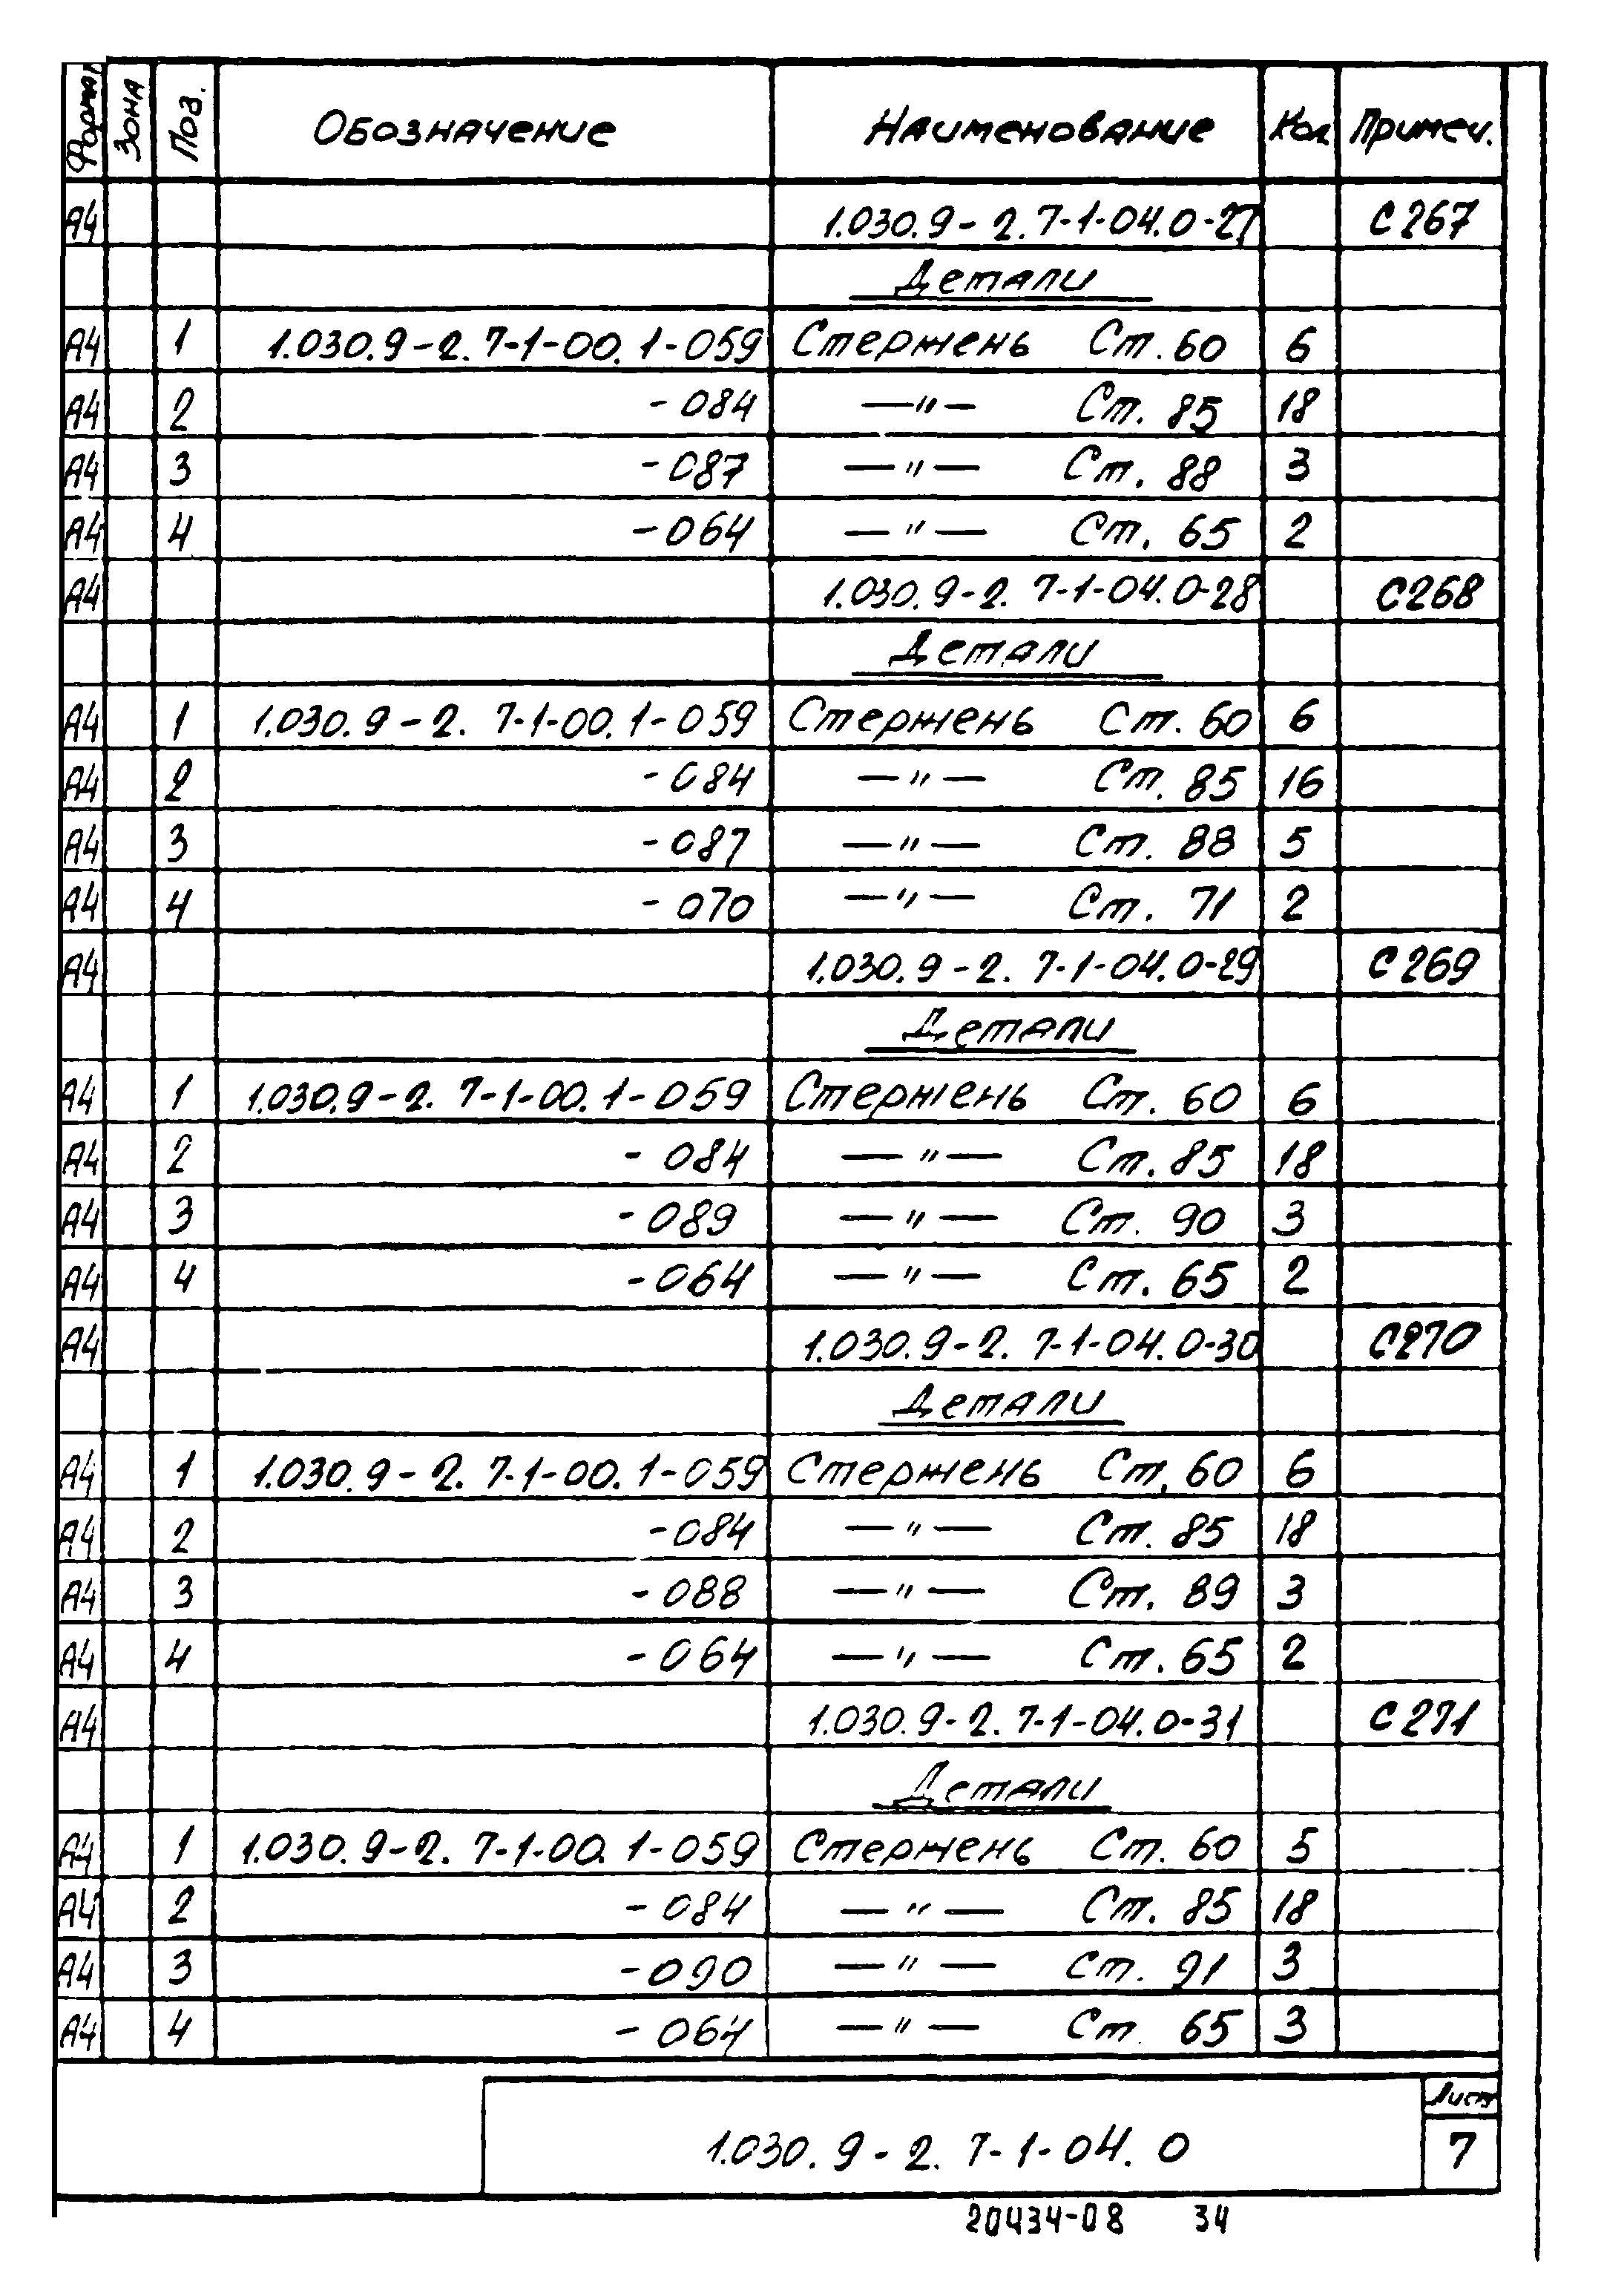 Формат Зона Поз. Обозначение Наименование Кол Примеч.
А4 1.030.9-2.7-1-04.0-27 С267
Детали
А4 1 1.030.9-2.7-1-00.1-059 Стержень Ст.60 6
А4 2 -084 —"— Ст. 85 18
А4 3 -087 —"— Ст. 88 3
А4 4 -064 —"— Ст. 65 2
А4 1.030.9-2.7-1-04.0-28 С268
Детали
А4 1 1.030.9-2.7-1-00.1-059 Стержень Ст.60 6
А4 2 -084 —"— Ст. 85 16
А4 3 -087 —"— Ст. 88 5
А4 4 -070 —"— Ст. 71 2
А4 1.030.9-2.7-1-04.0-29 С269
Детали
А4 1 1.030.9-2.7-1-00.1-059 Стержень Ст. 60 6
А4 2 -084 —"— Ст. 85 18
А4 3 -089 —"— Ст. 90 3
А4 4 -064 —"— Ст. 65 2
А4 1.030.9-2.7-1-04.0-30 С270
Детали
А4 1 1.030.9-2.7-1-00.1-059 Стержень Ст. 60 6
А4 2 -084 —"— Ст. 85 18
А4 3 -088 —"— Ст. 89 3
А4 4 -064 —"— Ст. 65 2
А4 1.030.9-2.7-1-04.0-31 С271
Детали
А4 1 1.030.9-2.7-1-00.1-059 Стержень Ст. 60 5
А4 2 -084 —"— Ст. 85 18
А4 3 -090 —"— Ст. 91 3
А4 4 -064 —"— Ст 65 3
Лист
1.030.9-2.7-1-04.0 7
20434-08 34